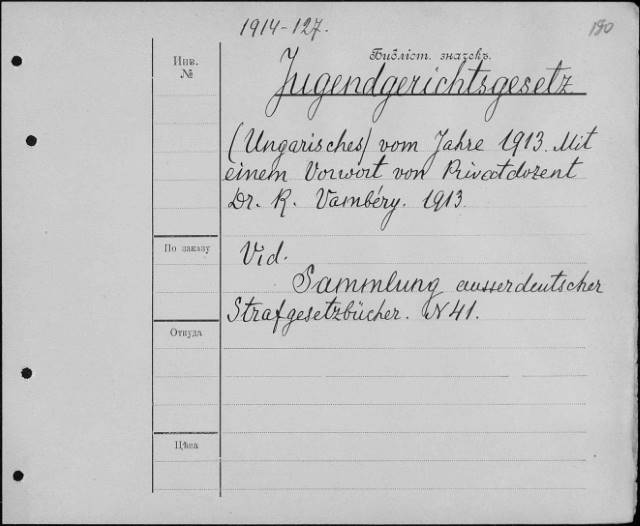 1914-127.
190
Инв.
№
Библіот. значекъ.
Jugendgerichtsgesetz
(Ungarisches) vom Jahre 1913. Mit
einem Vorwort von Privatdozent
Dr. R. Vambéry. 1913
По заказу
Vid.
Sammlung ausserdeutscher
Strafgesetzbücher. N 41.
Откуда
Цѣна